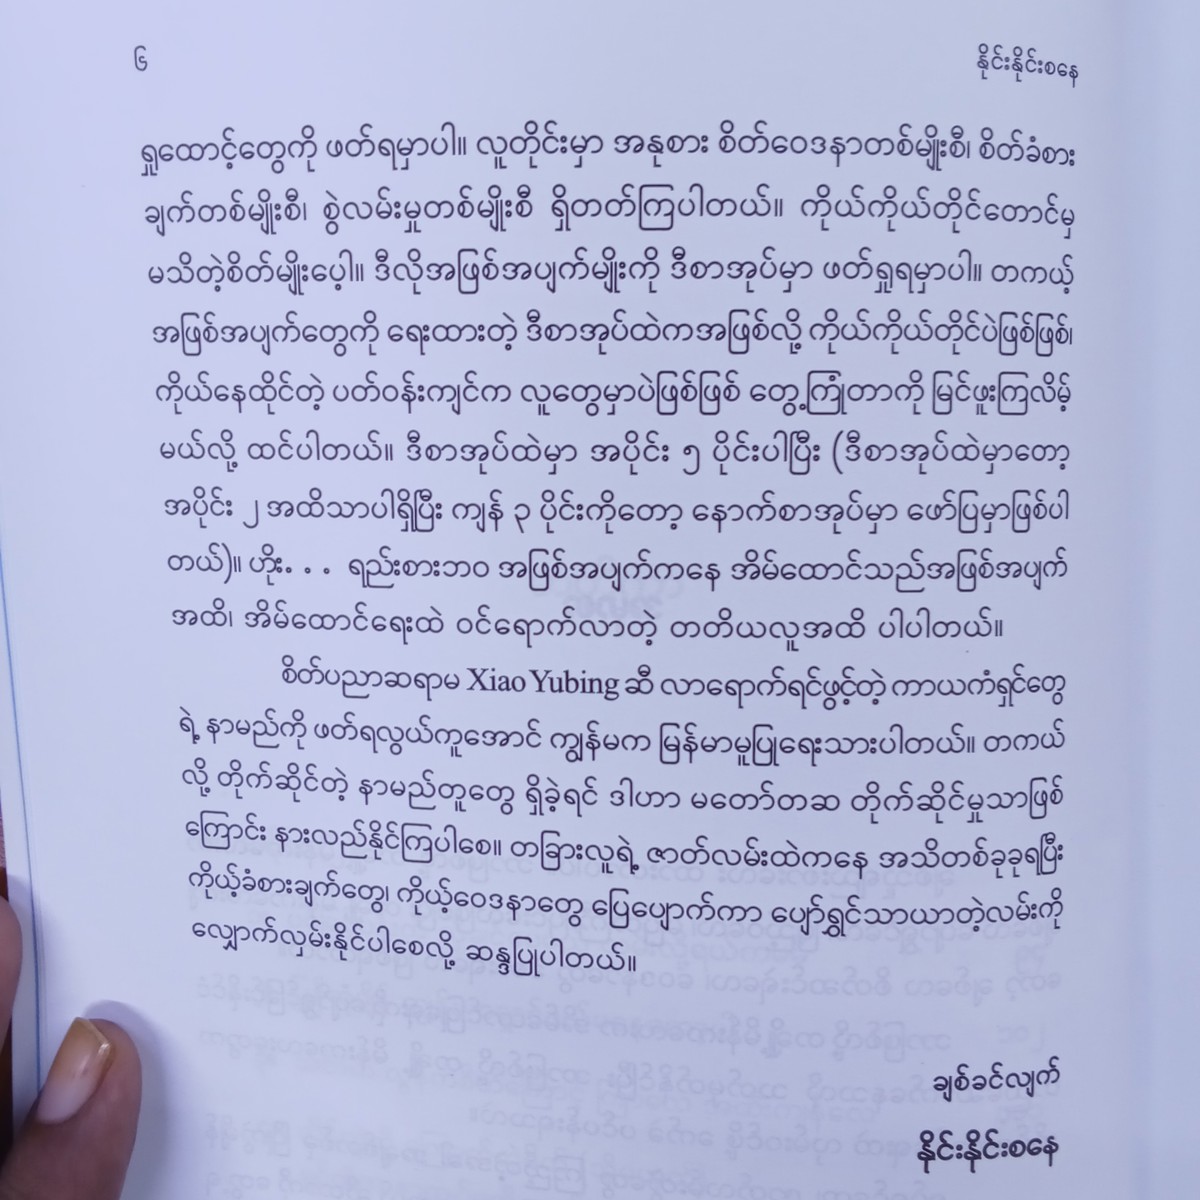 ၆
နိုင်းနိုင်းစနေ
ရှုထောင့်တွေကို ဖတ်ရမှာပါ။ လူတိုင်းမှာ အနုစား စိတ်ဝေဒနာတစ်မျိုးစီ၊ စိတ်ခံစား
ချက်တစ်မျိုးစီ၊ စွဲလမ်းမှုတစ်မျိုးစီ ရှိတတ်ကြပါတယ်။ ကိုယ်ကိုယ်တိုင်တောင်မှ
မသိတဲ့စိတ်မျိုးပေ့ါ။ ဒီလိုအဖြစ်အပျက်မျိုးကို ဒီစာအုပ်မှာ ဖတ်ရှုရမှာပါ။ တကယ့်
အဖြစ်အပျက်တွေကို ရေးထားတဲ့ ဒီစာအုပ်ထဲကအဖြစ်လို့ ကိုယ်ကိုယ်တိုင်ပဲဖြစ်ဖြစ်၊
ကိုယ်နေထိုင်တဲ့ ပတ်ဝန်းကျင်က လူတွေမှာပဲဖြစ်ဖြစ် တွေ့ကြုံတာကို မြင်ဖူးကြလိမ့်
မယ်လို့ ထင်ပါတယ်။ ဒီစာအုပ်ထဲမှာ အပိုင်း ၅ ပိုင်းပါပြီး (ဒီစာအုပ်ထဲမှာတော့
အပိုင်း ၂ အထိသာပါရှိပြီး ကျန် ၃ ပိုင်းကိုတော့ နောက်စာအုပ်မှာ ဖော်ပြမှာဖြစ်ပါ
တယ်)။ ဟိုး. . . ရည်းစားဘဝ အဖြစ်အပျက်ကနေ အိမ်ထောင်သည်အဖြစ်အပျက်
အထိ၊ အိမ်ထောင်ရေးထဲ ဝင်ရောက်လာတဲ့ တတိယလူအထိ ပါပါတယ်။
စိတ်ပညာဆရာမ Xiao Yubing ဆီ လာရောက်ရင်ဖွင့်တဲ့ ကာယကံရှင်တွေ
ရဲ့ နာမည်ကို ဖတ်ရလွယ်ကူအောင် ကျွန်မက မြန်မာမူပြုရေးသားပါတယ်။ တကယ်
လို့ တိုက်ဆိုင်တဲ့ နာမည်တူတွေ ရှိခဲ့ရင် ဒါဟာ မတော်တဆ တိုက်ဆိုင်မှုသာဖြစ်
ကြောင်း နားလည်နိုင်ကြပါစေ။ တခြားလူရဲ့ ဇာတ်လမ်းထဲကနေ အသိတစ်ခုခုရပြီး
ကိုယ့်ခံစားချက်တွေ၊ ကိုယ့်ဝေဒနာတွေ ပြေပျောက်ကာ ပျော်ရွှင်သာယာတဲ့လမ်းကို
လျှောက်လှမ်းနိုင်ပါစေလို့ ဆန္ဒပြုပါတယ်။
ချစ်ခင်လျက်
နိုင်းနိုင်းစနေ